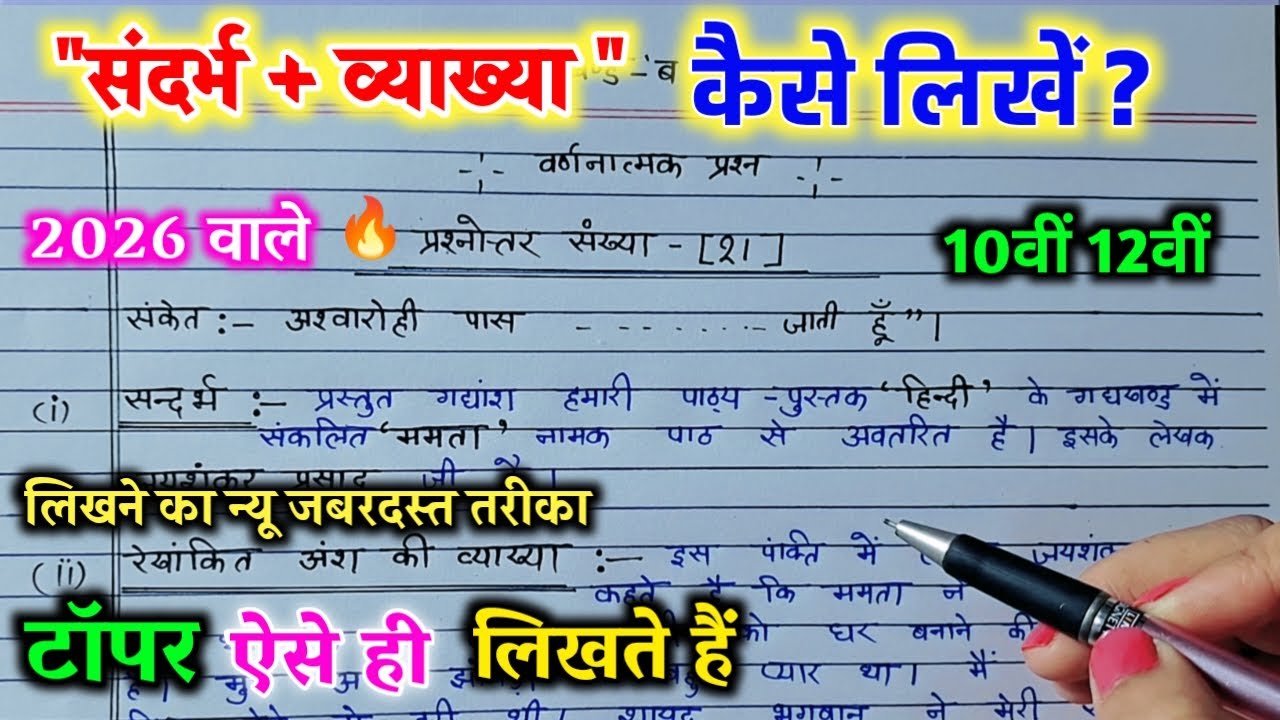 "संदर्भ + व्याख्या" कैसे लिखें ?
-:- वर्णनात्मक प्रश्न -:-
2026 वाले
प्रश्नोत्तर संख्या - [२१]
10वीं 12वीं
संकेत :- अश्वारोही पास - - - ...... - जाती हूँ”।
(i) सन्दर्भ :- प्रस्तुत गद्यांश हमारी पाठ्य-पुस्तक ‘हिन्दी’ के गद्यखण्ड में
संकलित ‘ममता’ नामक पाठ से अवतरित है। इसके लेखक
जयशंकर प्रसाद जी है।
लिखने का न्यू जबरदस्त तरीका
(ii) रेखांकित अंश की व्याख्या :- इस पंक्ति में
कहते है कि ममता ने
टॉपर ऐसे ही लिखते हैं
को घर बनाने की
प्यार था। मैं
थी। शायद भगवान ने मेरी